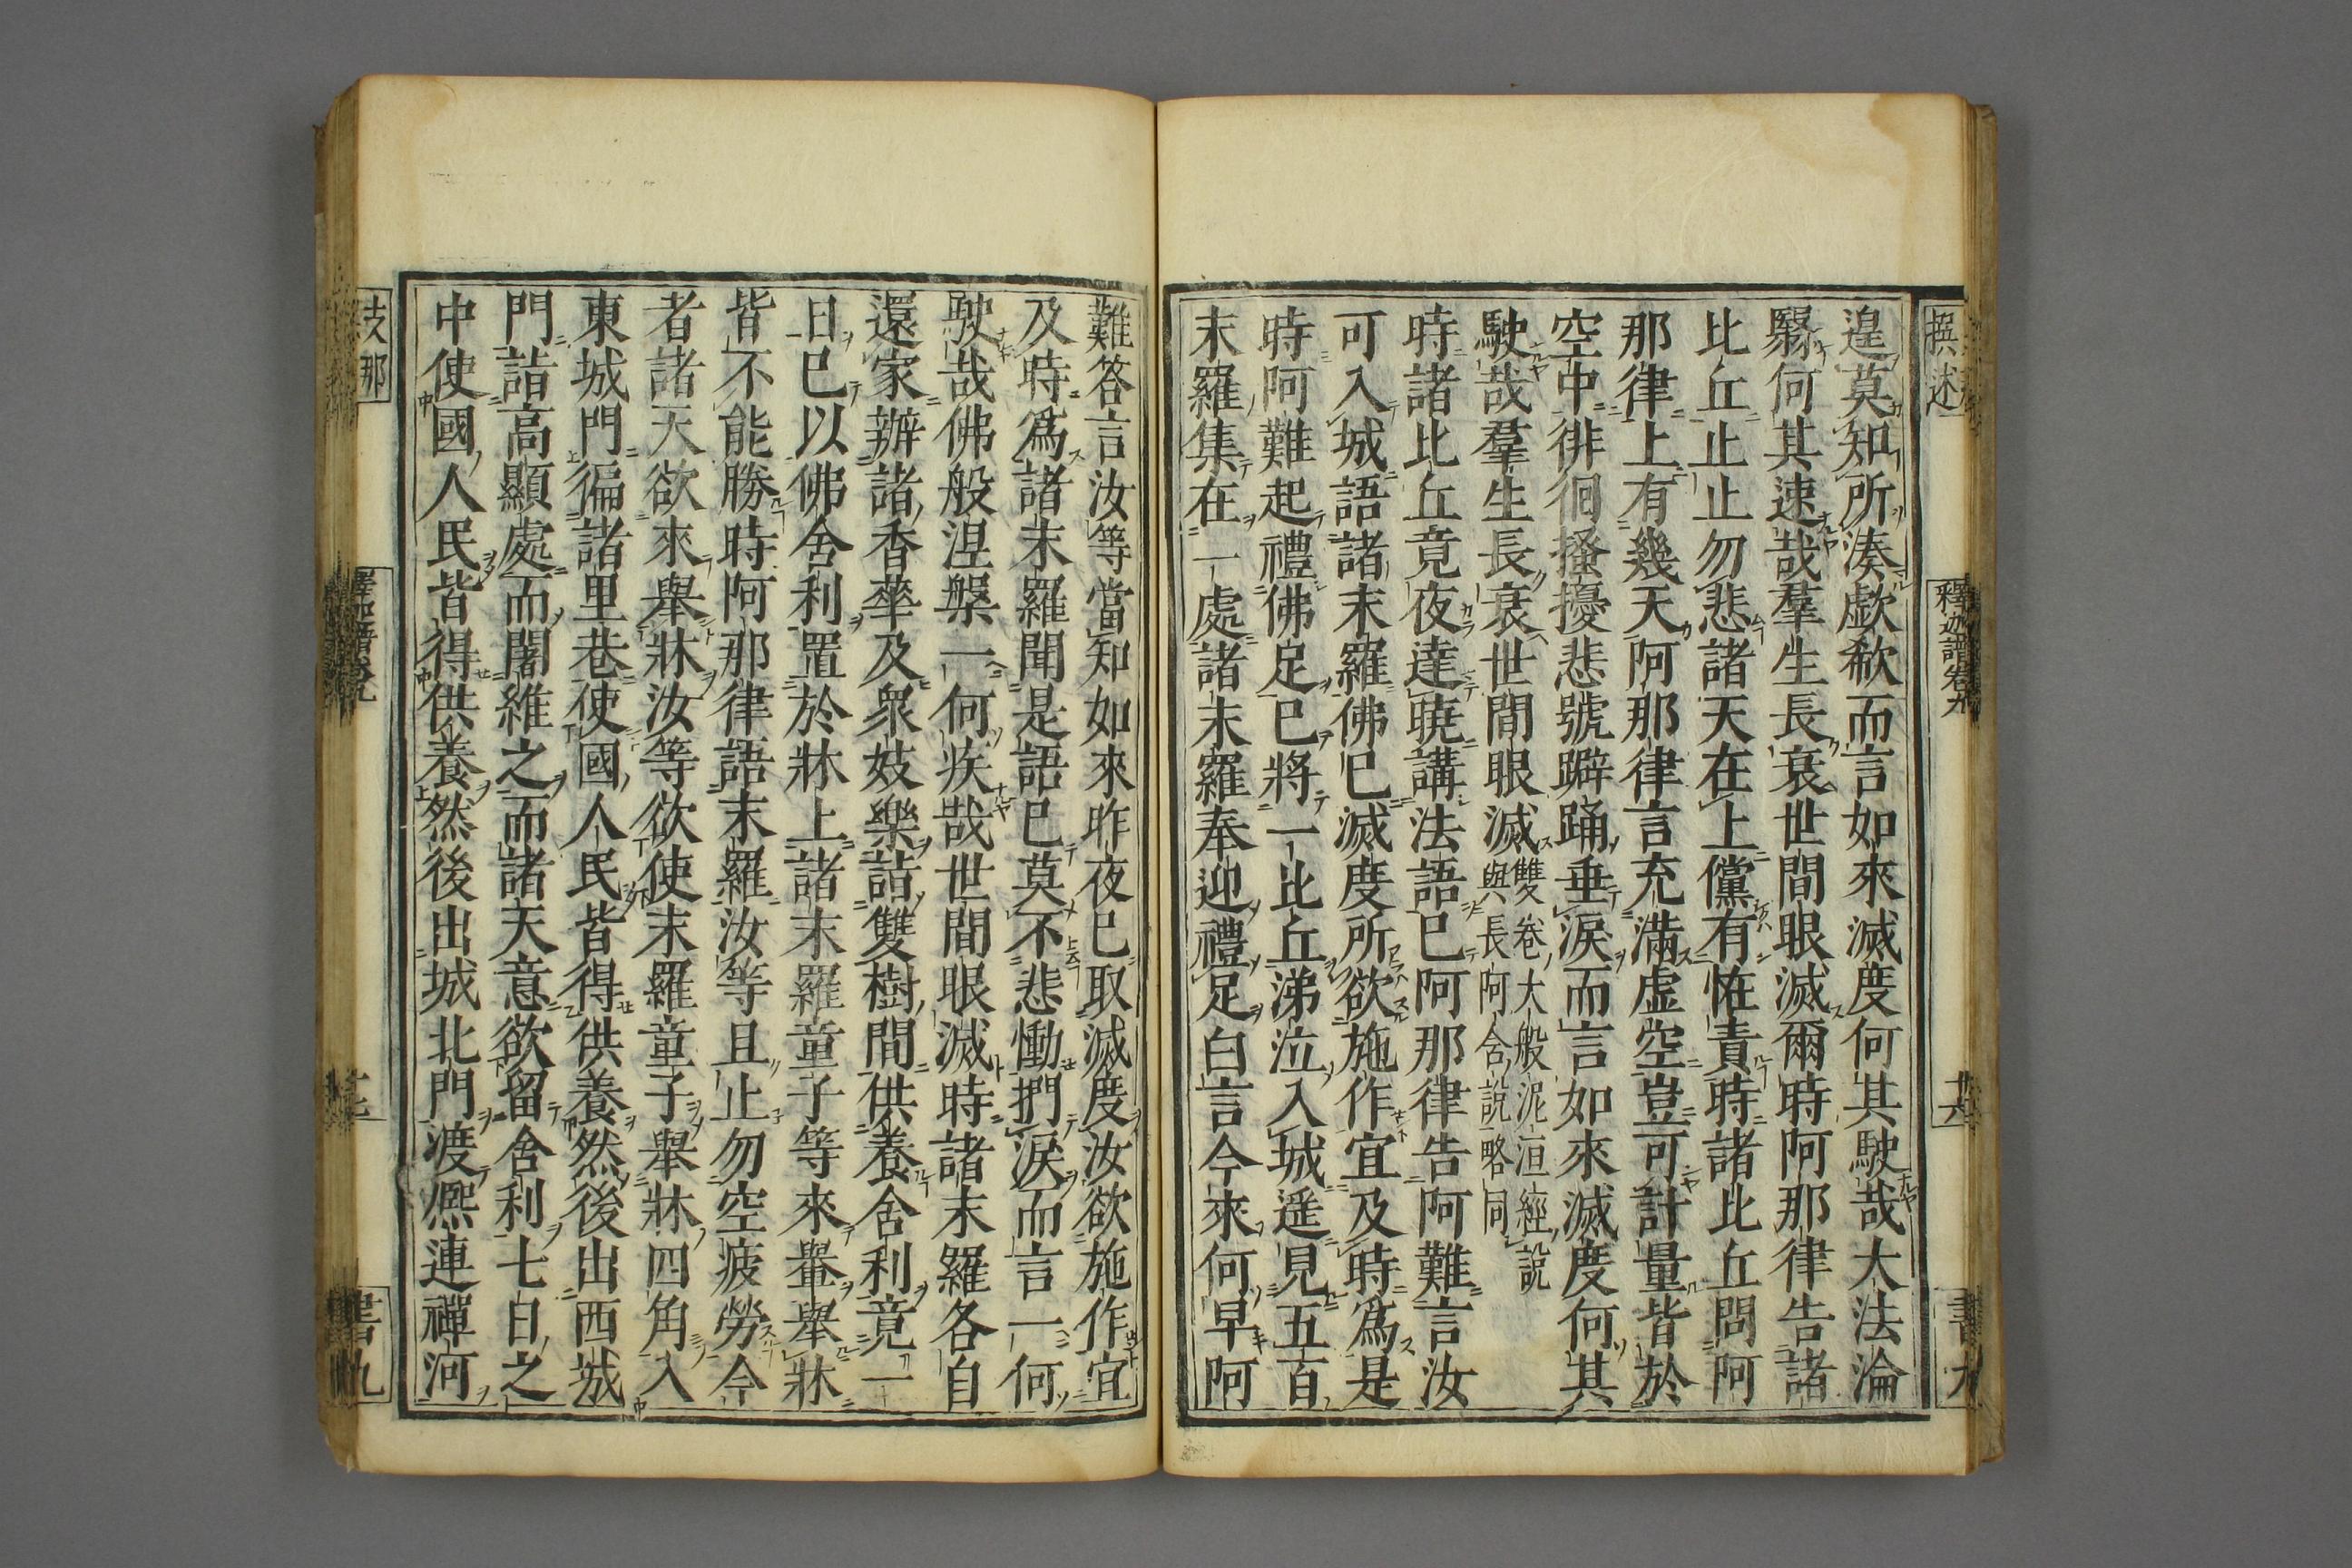 撰述
釋迦譜卷九
十六
書九
遑莫知所湊歔欷而言如來滅度何其駛哉大法淪
翳何其速哉羣生長衰世間眼滅爾時阿那律告諸
比丘止止勿悲諸天在上儻有恠責時諸比丘問阿
那律上有幾天阿那律言充滿虛空豈可計量皆於
空中徘徊搔擾悲號躃踊垂淚而言如來滅度何其
駛哉羣生長衰世間眼滅雙卷大般泥洹經說與長阿含說略同
時諸比丘竟夜達曉講法語已阿那律告阿難言汝
可入城語諸末羅佛已滅度所欲施作宜及時爲是
時阿難起禮佛足已將一比丘涕泣入城遥見五百
末羅集在一處諸末羅奉迎禮足白言今來何早阿
難答言汝等當知如來昨夜已取滅度汝欲施作宜
及時爲諸末羅聞是語已莫不悲慟捫淚而言一何
駛哉佛般涅槃一何疾哉世間眼滅時諸末羅各自
還家辦諸香華及衆妓樂詣雙樹間供養舍利竟一
日已以佛舍利置於牀上諸末羅童子等來轝舉牀
皆不能勝時阿那律語末羅汝等且止勿空疲勞今
者諸天欲來舉牀汝等欲使末羅童子舉牀四角入
東城門徧諸里巷使國人民皆得供養然後出西城
門詣高顯處而闍維之而諸天意欲留舍利七日之
中使國人民皆得供養然後出城北門渡熈連禪河
支那
釋迦譜卷九
十七
書九